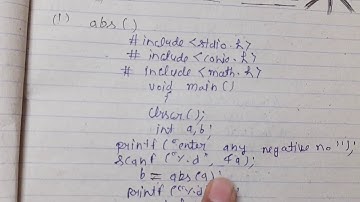 (1) abs()
# include <stdio.h>
# include <conio.h>
# include <math.h>
void main()
{
clrscr();
int a,b;
printf("enter any negative no");
scanf("%d", &a);
b = abs(a);
printf("%d